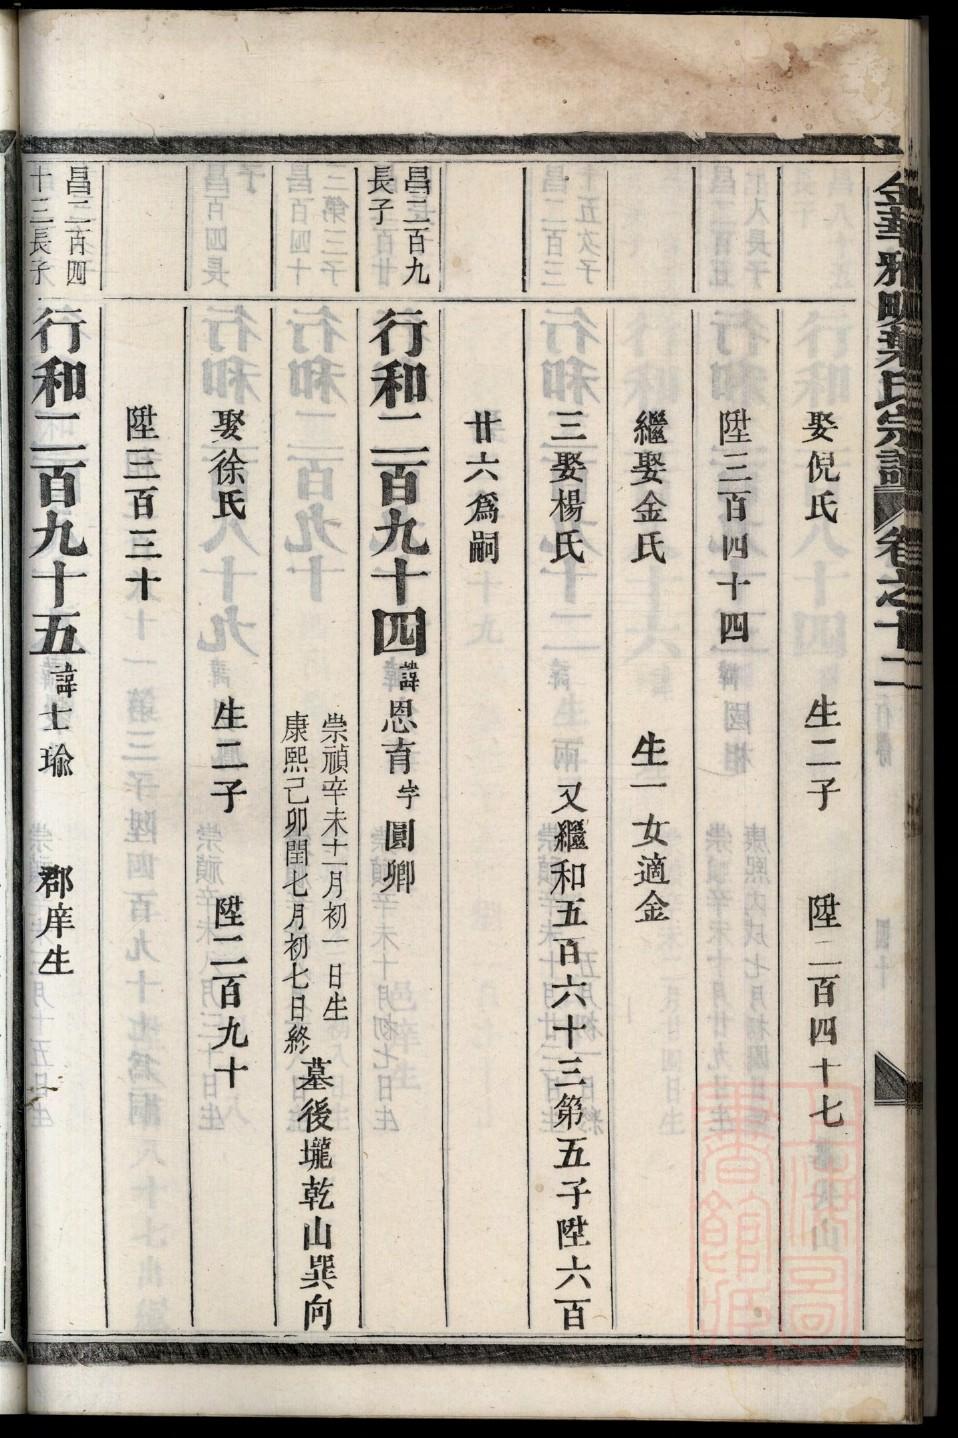 金華雅畈葉氏宗譜 卷之十二
娶倪氏 生二子 陞二百四十七
陞三百四十四
繼娶金氏 生一女適金
三娶楊氏 又繼和五百六十三第五子陞六百
廿六爲嗣
昌二百九
長子
行和二百九十四 諱思育 字圓卿
崇禎辛未十一月初一日生
康熙己卯閏七月初七日終
墓後壠乾山巽向
娶徐氏 生二子 陞二百九十
陞三百三十
昌二百四
十三長子
行和二百九十五 諱士瑜 郡庠生